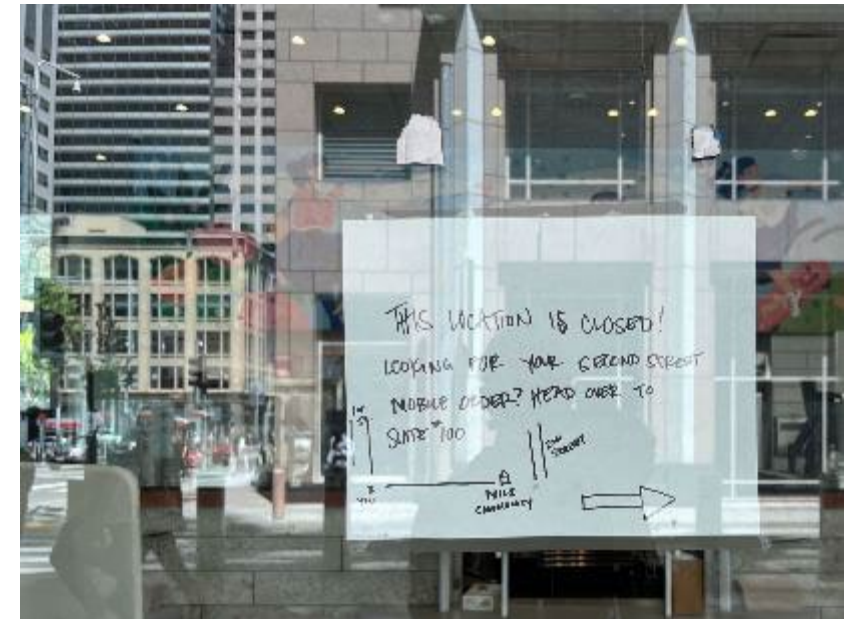 THIS LOCATION IS CLOSED!
LOOKING FOR YOUR SECOND STREET
MOBILE ORDER? HEAD OVER TO
SUITE #100
1st
ST
2nd
STREET
X
YOU